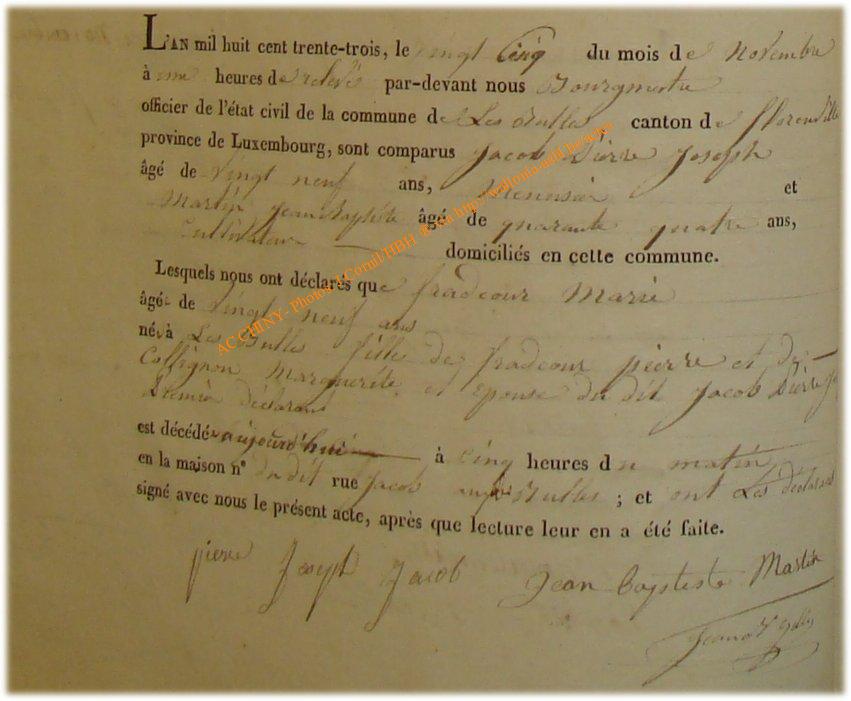 L'AN mil huit cent trente-trois, le vingt Cinq du mois de novembre
à une heures de relevé par-devant nous Bourgmestre
officier de l'état civil de la commune de Les Bulles canton de florenville
province de Luxembourg, sont comparus Jacob Pierre Joseph
âgé de vingt neuf ans, Menuisier et
Martin Jean Baptiste âgé de quarante quatre ans,
Cultivateur domiciliés en cette commune.
Lesquels nous ont déclarés que fradcour Marie
âgée de vingt neuf ans
née à Les Bulles fille de fradcour pierre et de
Collignon Marguerite et Epouse du dit Jacob Pierre
Premier déclarant
est décédée aujourd'hui à cinq heures du matin
en la maison n° du dit rue Jacob aux Bulles ; et ont Les déclarans
signé avec nous le présent acte, après que lecture leur en a été faite.
pierre Joseph Jacob Jean baptiste Martin
AC CHINY - Photos J.Cornil/HBH